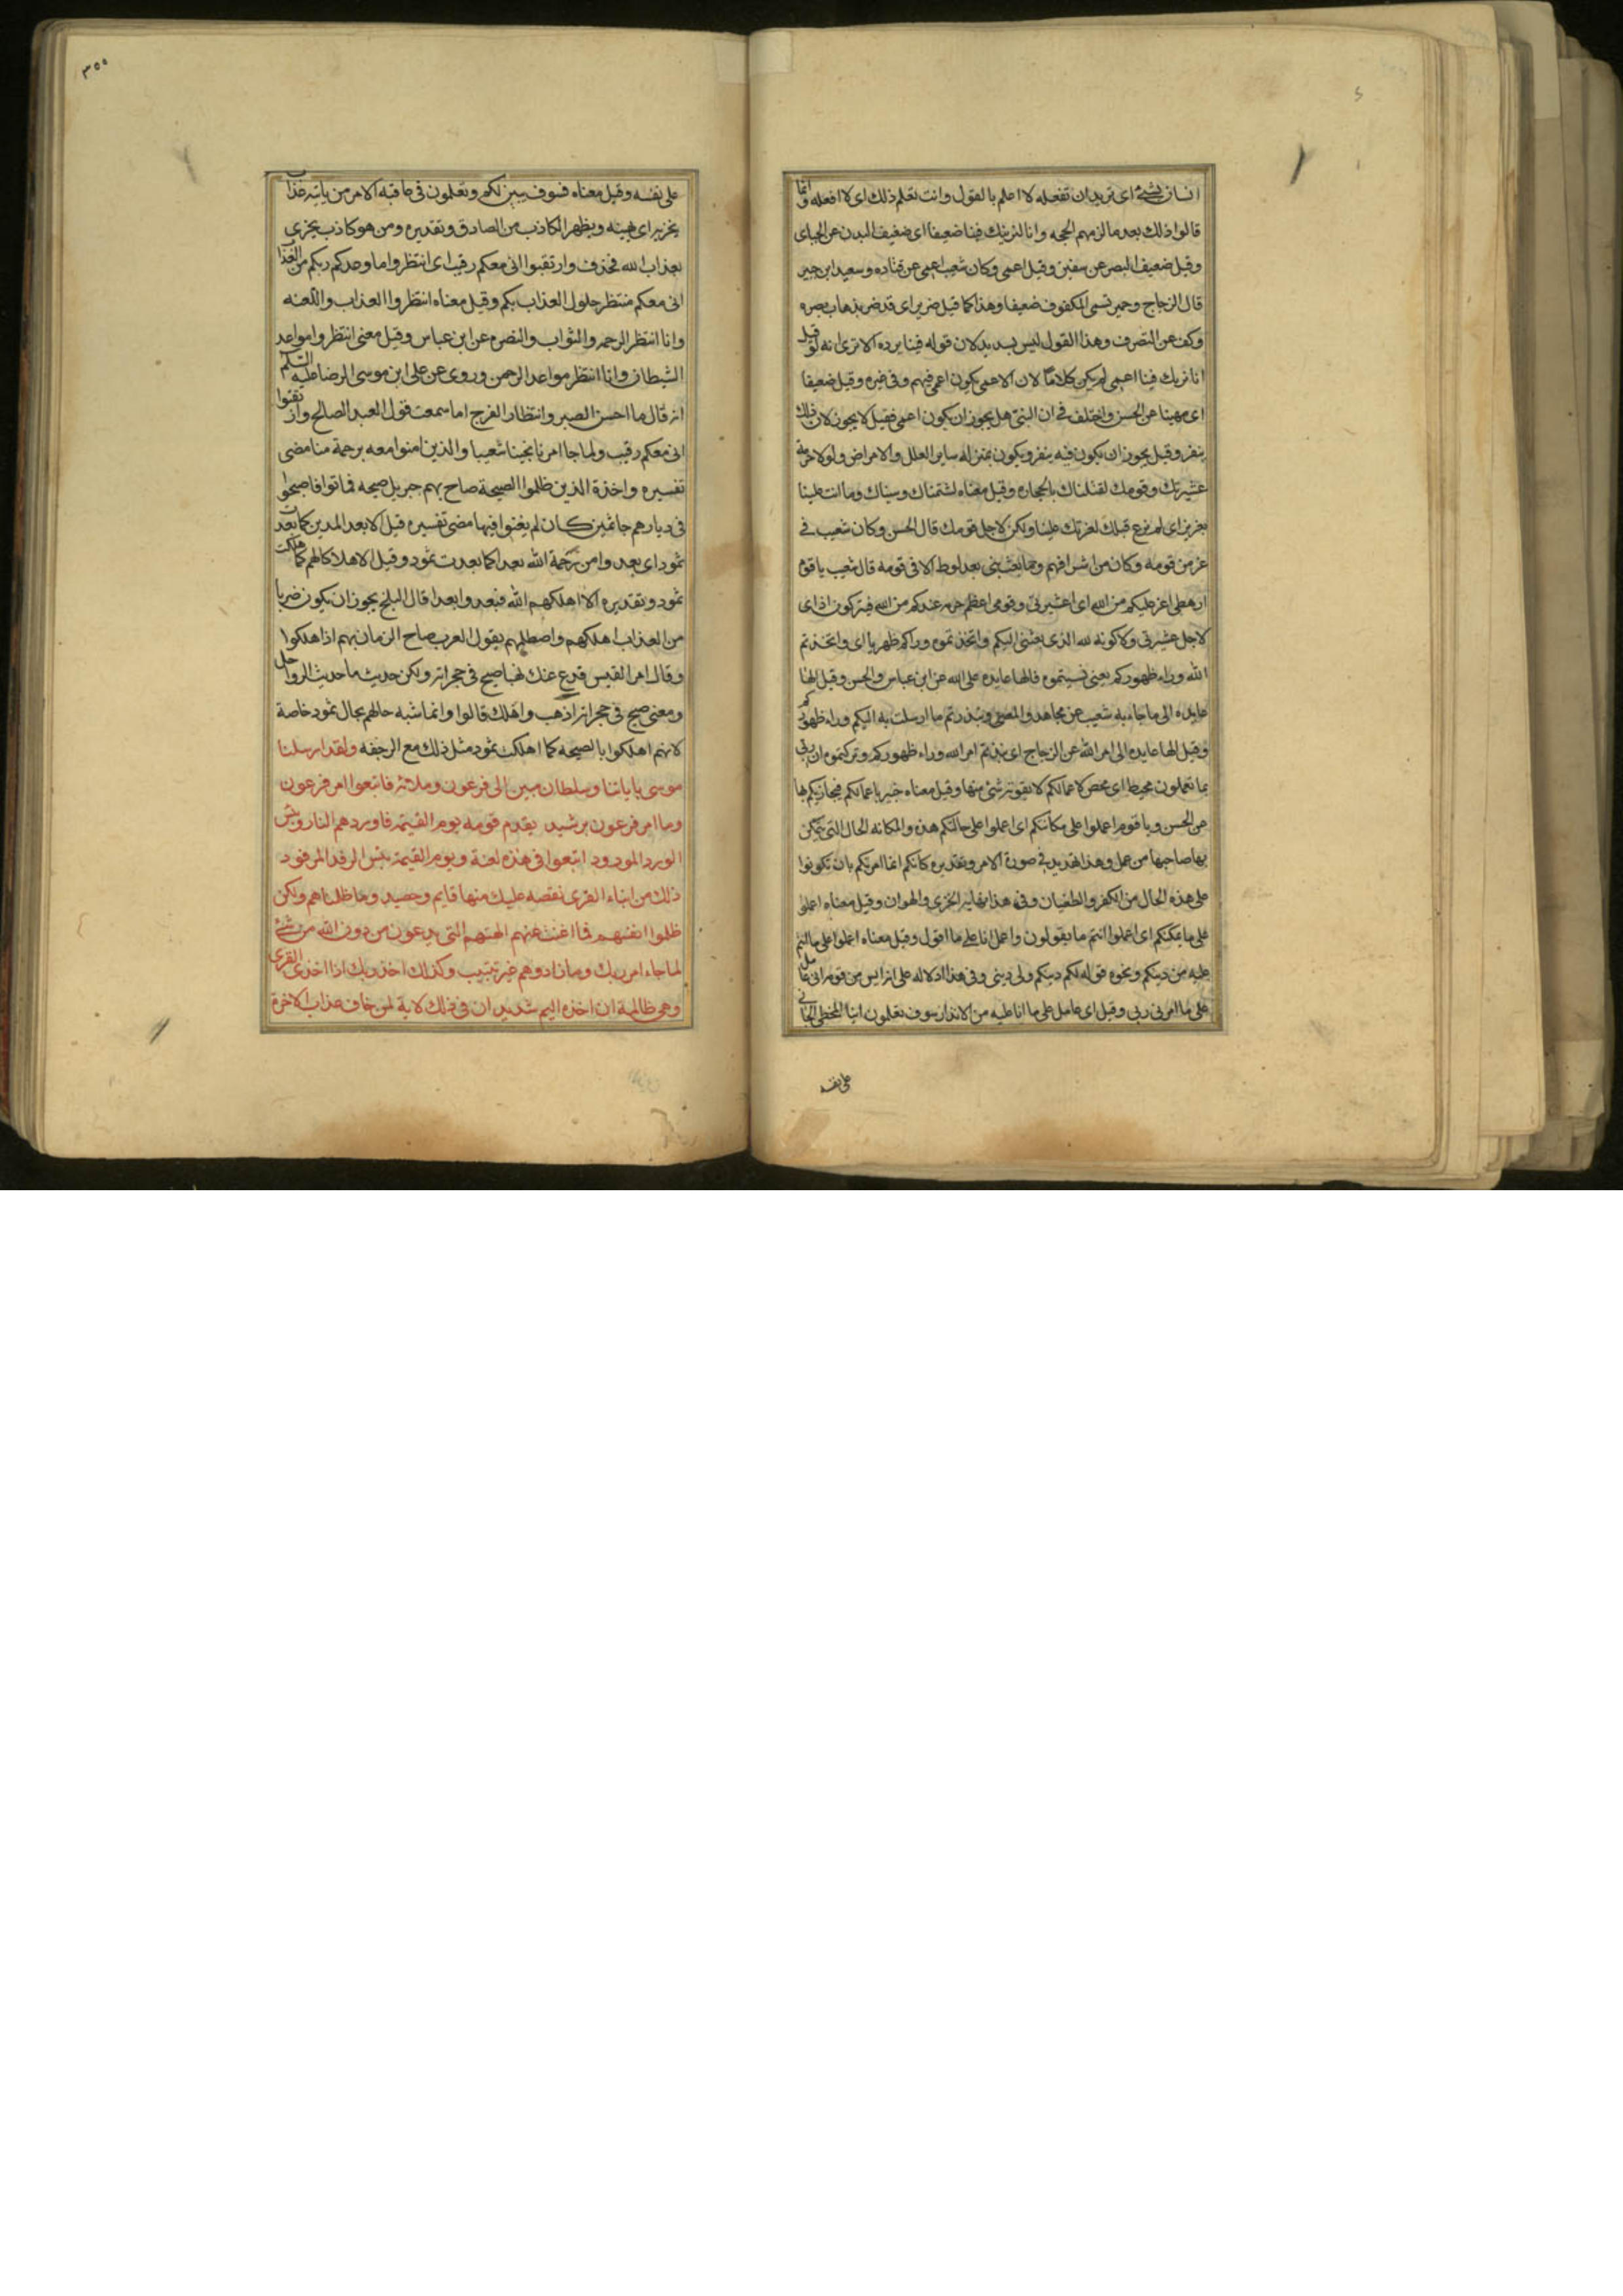 انسان بشئ اى تريد ان تفعله لا اعلم بالقول وانت تعلم ذلك اى لا افعله وانما
قالوا ذلك بعد ما لزمهم الحجه وانا لنريك فينا ضعيفا اى ضعيف البدن عن الجباى
وقيل ضعيف البصر عن سفين وقيل اعمى وكان شعيب اعمى عن قتاده وسعيد ابن جبير
قال الزجاج وحمير تسمى المكفوف ضعيفا وهذا كما قيل ضرير اى قد ضر بذهاب بصره
وكف عن التصرف وهذا القول ليس بسديد لان قوله فينا يرده الا ترى انه لو قيل
انا نريك فينا اعمى لم يكن كلاما لان الاعمى يكون اعمى فيهم وفى غيره وقيل ضعيفا
اى مهينا عن الحسن واختلف فى ان النبى هل يجوز ان يكون اعمى فقيل لا يجوز لان ذلك
ينفر وقيل يجوز ان يكون فيه ينفر ويكون بمنزله ساير العلل والامراض ولولا حرمة
عشيرتك وقومك لقتلناك بالحجاره وقيل معناه لشتمناك وسبناك وما انت علينا
بعزيز اى لم ندع قتلك لعزتك علينا ولكن لاجل قومك قال الحسن وكان شعيب فى
عز من قومه وكان من اشرافهم وما بعث نبى بعد لوط الا فى قومه قال شعيب يا قوم
ارهطى اعز عليكم من الله اى اعشيرتى وقومى اعظم حرمه عندكم من الله فتركون اذاى
لاجل عشيرتى ولا كونه لله الذى بعثنى اليكم واتخذتموه وراكم ظهريا اى واتخذتم
الله وراء ظهوركم يعنى نسيتموه فالها عايده على الله عن ابن عباس والحسن وقيل الها
عايده الى ما جاء به شعيب عن مجاهد والمعنى ونبذتم ما ارسلت به اليكم وراء ظهوركم
وقيل الها عايده الى امر الله عن الزجاج اى نبذتم امر الله وراء ظهوركم وتركتموه ان ربى
بما تعملون محيط اى محص لاعمالكم لا يفوته شئ منها وقيل معناه خبير باعمالكم فيجازيكم بها
عن الحسن ويا قوم اعملوا على مكانتكم اى اعملوا على حالتكم هذه والمكانه الحال التى يتمكن
بها صاحبها من عمل وهذا تهديد فى صورة الامر وتقديره كانكم انما امرتكم بان تكونوا
على هذه الحال من الكفر والطغيان وفى هذا نهاية الخزى والهوان وقيل معناه اعملوا
على ما يمكنكم اى اعملوا انتم ما تقولون واعمل انا على ما اقول وقيل معناه اعملوا على ما انتم
عليه من دينكم ونحوه قوله لكم دينكم ولى دينى وفى هذا دلاله على انه ايس من قومه انى عامل
على ما امرنى ربى وقيل اى عامل على ما انا عليه من الانذار سوف تعلمون اينا المخطى الجانى
على نفسه
٣٥٥
على نفسه وقيل معناه فسوف يبين لكم وتعلمون فى عاقبه الامر من ياتيه عذاب
يخزيه اى يهينه ويظهر الكاذب من الصادق وتقديره ومن هو كاذب يجزى
بعذاب الله فحذف وارتقبوا انى معكم رقيب اى انتظروا ما وعدكم ربكم من العذاب
انى معكم منتظر حلول العذاب بكم وقيل معناه انتظروا العذاب واللعنه
وانا انتظر الرحمه والثواب والنصره عن ابن عباس وقيل معنى انتظروا مواعد
الشيطان وانا انتظر مواعد الرحمن وروى عن على ابن موسى الرضا عليه السلم
انه قال ما احسن الصبر وانتظار الفرج اما سمعت قول العبد الصالح وارتقبوا
انى معكم رقيب ولما جا امرنا نجينا شعيبا والذين امنوا معه برحمة منا مضى
تفسيره واخذة الذين ظلموا الصيحة صاح بهم جبريل صيحه فماتوا فاصبحوا
فى ديارهم جاثمين كان لم يغنوا فيها مضى تفسيره قيل الا بعد المدين كما بعدت
ثمود اى بعدوا من رحمة الله بعدا كما بعدت ثمود وقيل الا هلاكا لهم كما هلكت
ثمود وتقديره الا اهلكهم الله فبعدوا بعدا قال البلخى يجوز ان يكون ضربا
من العذاب اهلكهم واصطلمهم يقول العرب صاح الزمان بهم اذا هلكوا
وقال امرا القيس فدع عنك نهبا صيح فى حجراته ولكن حديث ما حديث الرواحل
ومعنى صيح فى حجراته اذهب واهلك قالوا وانما شبه حالهم بحال ثمود خاصة
لانهم اهلكوا بالصيحه كما اهلكت ثمود مثل ذلك مع الرجفه ولقد ارسلنا
موسى باياتنا وسلطان مبين الى فرعون وملائه فاتبعوا امر فرعون
وما امر فرعون برشيد يقدم قومه يوم القيمه فاوردهم النار وبئس
الورد المورود اتبعوا فى هذه لعنة ويوم القيمة بئس الرفد المرفود
ذلك من انباء القرى نقصه عليك منها قايم وحصيد وما ظلمناهم ولكن
ظلموا انفسهم فما اغنت عنهم الهتهم التى يدعون من دون الله من شئ
لما جاء امر ربك وما زادوهم غير تتبيب وكذلك اخذ ربك اذا اخذ القرى
وهى ظالمة ان اخذه اليم شديد ان فى ذلك لاية لمن خاف عذاب الاخرة